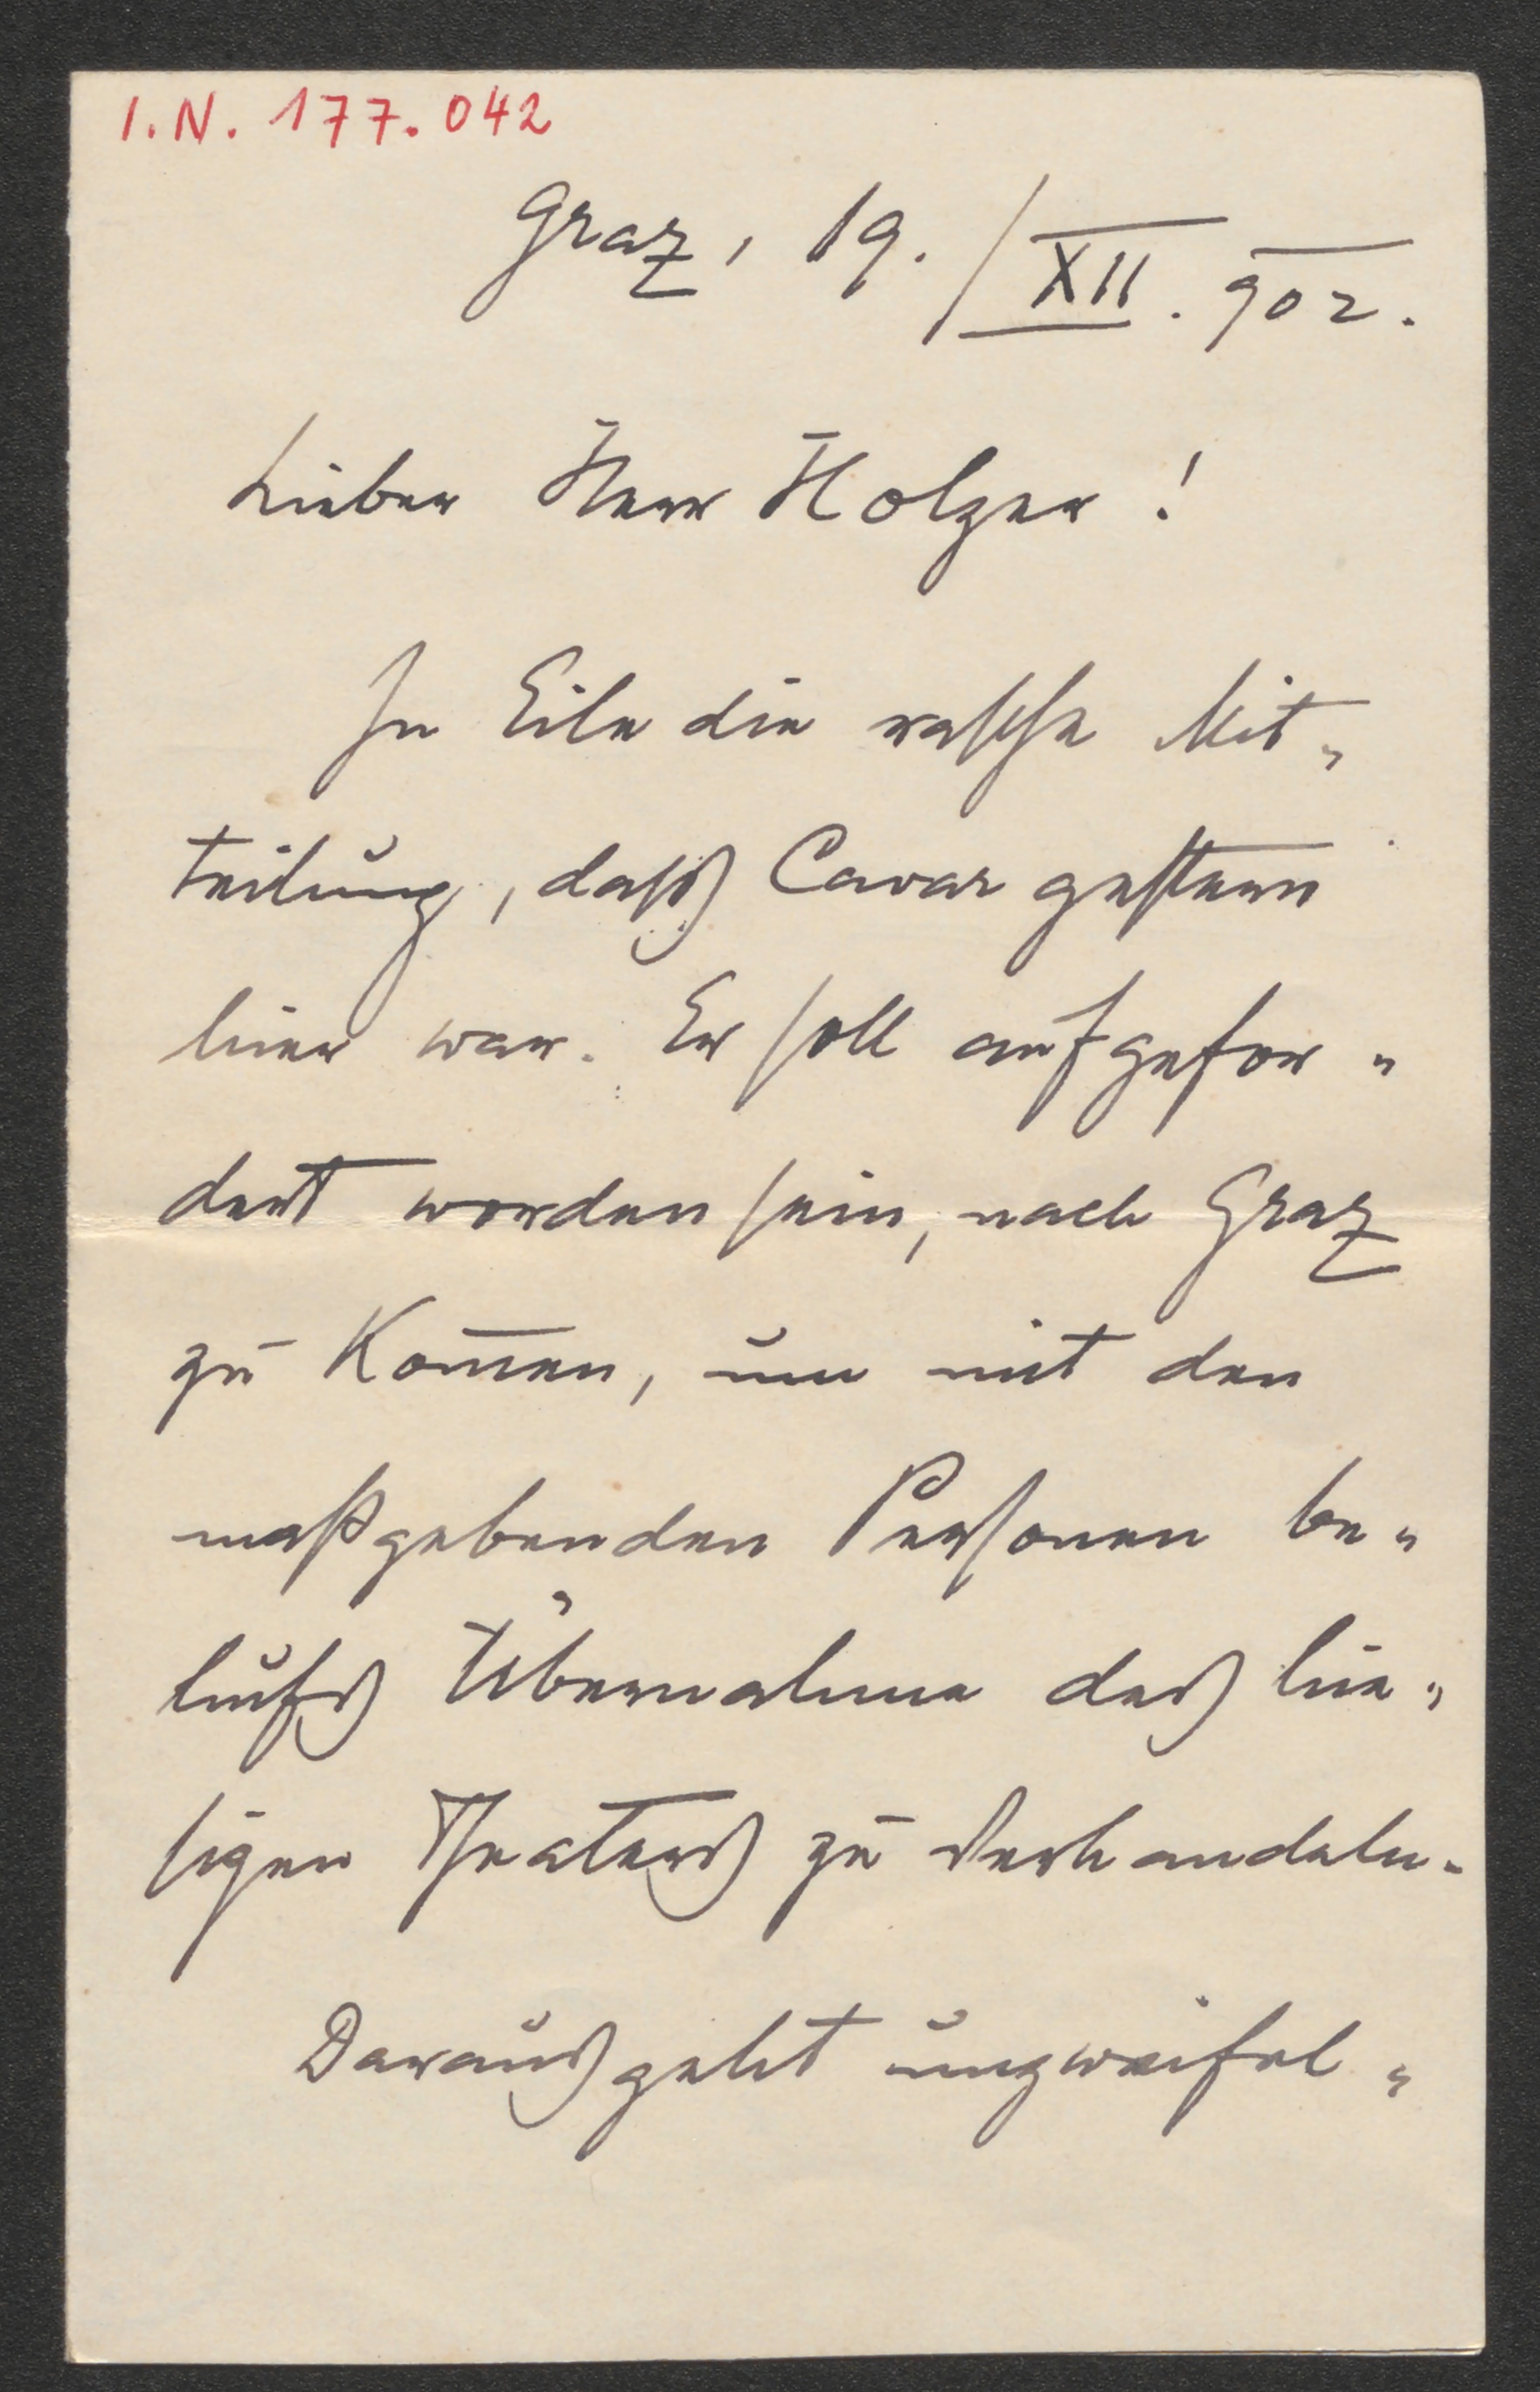 I.N. 177.042
Graz, 19./XII. 902.
Lieber Herr Holzer!
In Eile die rasche Mit„
teilung, daß Cavar gestern
hier war. Er soll aufgefor„
dert worden sein, nach Graz
zu kom̅en, um mit den
maßgebenden Personen be„
hufs Übernahme des hie„
sigen Theaters zu verhandeln.
Daraus geht unzweifel„